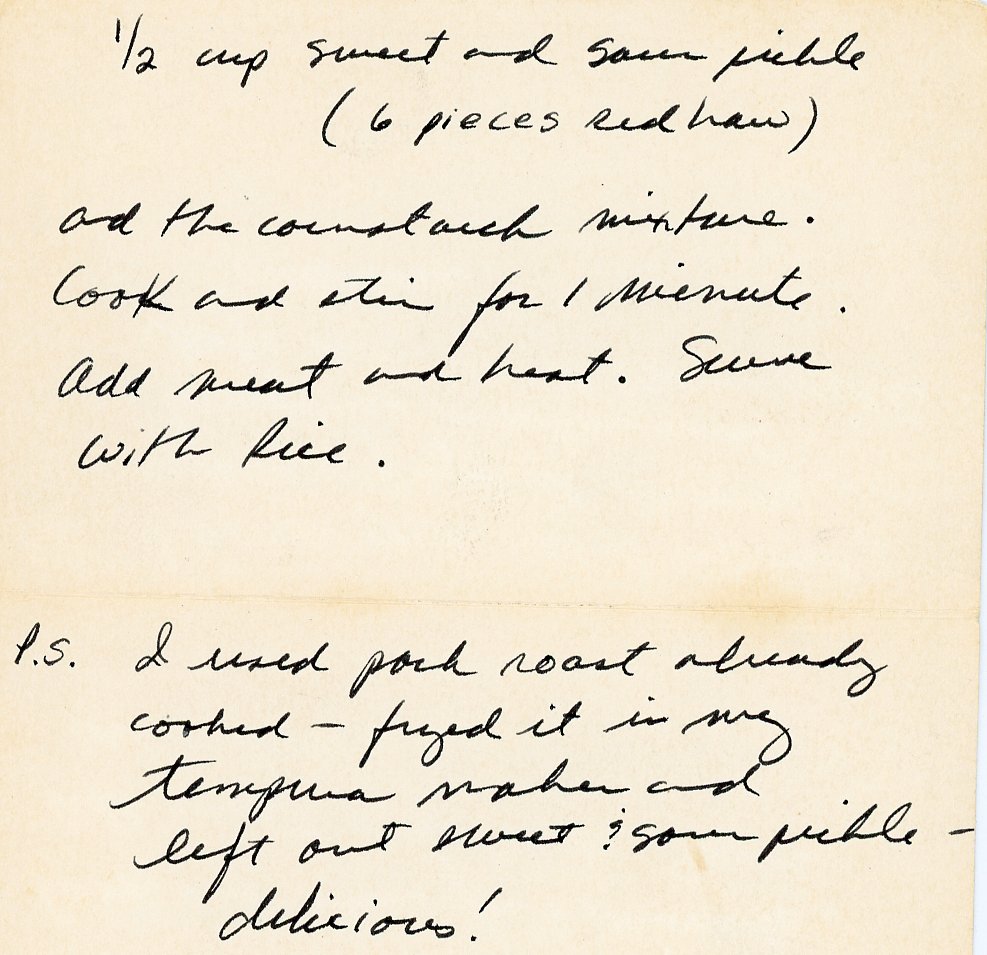 1/2 cup sweet and sour pickle
(6 pieces red haw)
ad the cornstarch mixture.
Cook and stir for 1 minute.
Add meat and heat. Serve
with Rice.
P.S. I used pork roast already
cooked – fryed it in my
tempura maker and
left out sweet & sour pickle –
delicious!